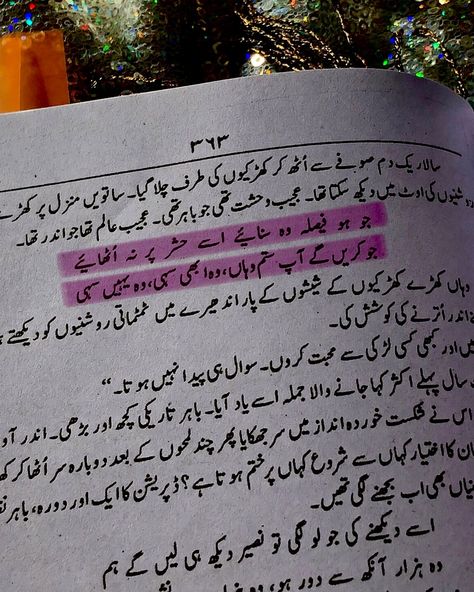 ۳۶۳
سالار یک دم صوفے سے اُٹھ کر کھڑکیوں کی طرف چلا گیا۔ ساتویں منزل پر کھڑے
روشنیوں کی اوٹ میں دیکھ سکتا تھا۔ عجیب وحشت تھی جو باہر تھی۔ عجیب عالم تھا جو اندر تھا۔
جو ہو فیصلہ وہ سنائیے اسے حشر پر نہ اُٹھائیے
جو کریں گے آپ ستم وہاں، وہ ابھی سہی، وہ یہیں سہی
وہاں کھڑے کھڑکیوں کے شیشوں کے پار اندھیرے میں ٹمٹماتی روشنیوں کو دیکھتے
اندر اُترنے کی کوشش کی۔
اور کبھی کسی لڑکی سے محبت کروں۔ سوال ہی پیدا نہیں ہوتا۔“
سال پہلے اکثر کہا جانے والا جملہ اسے یاد آیا۔ باہر تاریکی کچھ اور بڑھی۔ اندر
اس نے شکست خوردہ انداز میں سر جھکایا پھر چند لمحوں کے بعد دوبارہ سر اُٹھا کر
کا اختیار کہاں سے شروع کہاں پر ختم ہوتا ہے؟ ڈپریشن کا ایک اور دورہ، باہر
بھی اب بجھنے لگی تھیں۔
اسے دیکھنے کی جو لو لگی تو نصیر دیکھ ہی لیں گے ہم
وہ ہزار آنکھ سے دور ہو، وہ